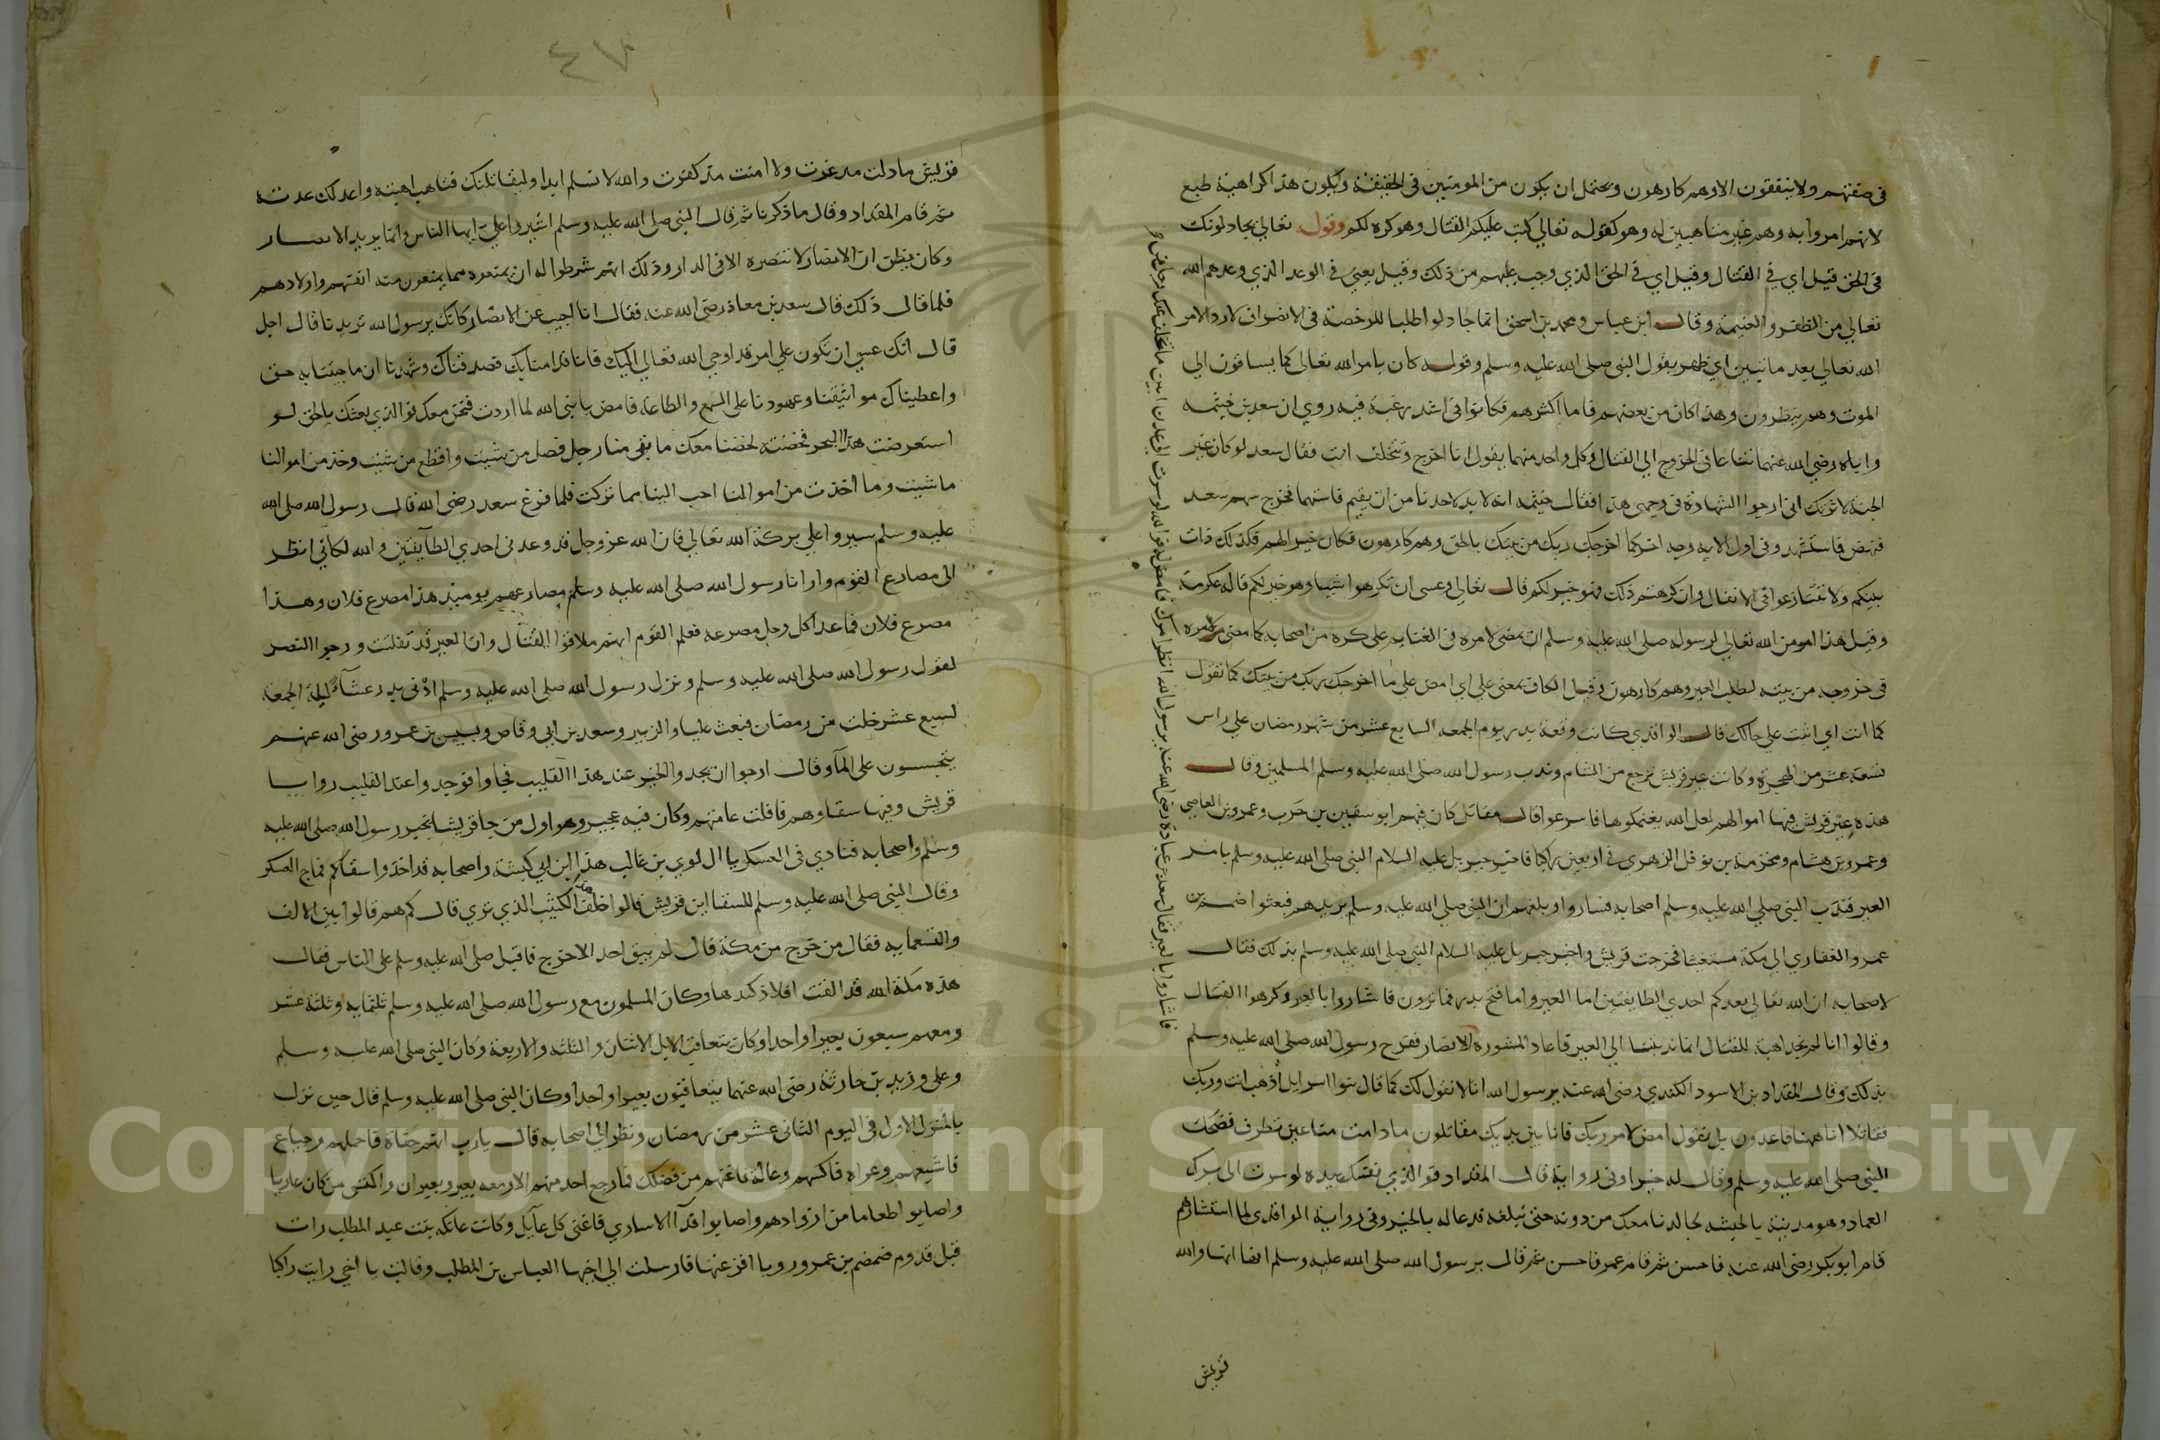 في صفتهم ولا ينفقون الا وهم كارهون ويحتمل ان يكون من المومنين في الحقيقة ويكون هذا كراهية طبع
لانهم امروا به وهم غير متاهبين له وهو كقوله تعالي كتب عليكم القتال وهو كره لكم وقوله تعالي يجادلونك
في الحق قيل اي في القتال وقيل اي في الحق الذي وجب عليهم من ذلك وقيل يعني في الوعد الذي وعدهم الله
تعالي من الظفر والغنيمة وقال ابن عباس ومحمد بن اسحق انما جادلوا طلبا للرخصة في الانصراف لا رد الامر
الله تعالي بعد ما تبين اي ظهر بقول النبي صلى الله عليه وسلم وقوله كان بامر الله تعالى كما يساقون الي
الموت وهم ينظرون وهذا كان من بعضهم فاما اكثرهم فكانوا في اشد رغبة فيه روي ان سعد بن خيثمه
واباه رضي الله عنهما تنازعا في الخروج الي القتال وكل واحد منهما يقول انا اخرج وتتخلف انت فقال سعد لو كان غير
الجنة لاثرتك اني ارجوا الشهادة في وجهي هذا فقال خيثمه انه لا بد لاحدنا من ان يقيم فاستهما فخرج سهم سعد
فنهض فاستشهد وفي اول الاية وجه اخر كما اخرجك ربك من بيتك بالحق وهم كارهون فكان خيرا لهم فكذلك ذات
بينكم ولا تتنازعوا في الانفال وان كرهتم ذلك فهو خير لكم قال تعالي وعسى ان تكرهوا شيئا وهو خير لكم قاله عكرمة
وقيل هذا امر من الله تعالي لرسوله صلى الله عليه وسلم ان يمضي لامره في الغنايم علي كره من اصحابه كما مضى لامره
في خروجه من بيته لطلب العير وهم كارهون وقيل الكاف بمعنى علي اي امض علي ما اخرجك ربك من بيتك كما تقول
كما انت اي اثبت علي حالك قال الواقدي كانت وقعة بدر يوم الجمعه السابع عشر من شهر رمضان علي راس
تسعة عشر من الهجرة وكانت عير قريش ترجع من الشام وندب رسول الله صلى الله عليه وسلم المسلمين وقال
هذه عير قريش فيها اموالهم لعل الله يغنمكوها فاسرعوا قال مقاتل كان فيهم ابو سفيين بن حرب وعمرو بن العاصي
وعمرو بن هشام ومخرمة بن نوفل الزهري في اربعين راكبا فاتي جبريل عليه السلام النبي صلى الله عليه وسلم بامر
العير فندب النبي صلى الله عليه وسلم اصحابه فساروا وبلغهم ان النبي صلى الله عليه وسلم يريدهم فبعثوا ضمضم بن
عمرو الغفاري الي مكة مستغيثا فخرجت قريش واخبر جبريل عليه السلام النبي صلى الله عليه وسلم بذلك فقال
لاصحابه ان الله تعالي يعدكم احدي الطايفتين اما العير واما فتح بدر فما ترون فاشاروا بالعير وكرهوا القتال
وقالوا انا لم نجد اهبة للقتال انما ندبتنا الي العير فاعاد المشورة الانصار ففرح رسول الله صلى الله عليه وسلم
بذلك وقال المقداد بن الاسود الكندي رضي الله عنه يرسول الله انا لا نقول لك كما قال بنوا اسرايل اذهب انت وربك
فقاتلا انا ههنا قاعدون بل نقول امض لامر ربك فانا بين يديك مقاتلون ما دامت منا عين تطرف فضحك
النبي صلى الله عليه وسلم وقال له خيرا وفي رواية قال المقداد فوالذي نفسك بيده لو سرت الى برك
العماد وهو مدينة بالحبشه لجالدنا معك من دونه حتى تبلغه فدعا له بالخير وفي رواية الواقدي لما استشارهم
قام ابو بكر رضي الله عنه فاحسن ثم قام عمر فاحسن ثم قال يرسول الله صلى الله عليه وسلم انها والله
فاشاروا بالعير فقال سعد بن عبادة رضي الله عنه يرسول الله انظر امرك فامض له فوالله لو سرت الي عدن ابين ما تخلف عنك
قريش
٤٧
قريش ما ذلت مذ عزت ولا امنت مذ كفرت والله لا تسلم ابدا وليقاتلنك فتاهب اهبته واعد لذلك عدته
ثم قام المقداد وقال ما ذكرنا ثم قال النبي صلى الله عليه وسلم اشيروا علي ايها الناس وانما يريد الانصار
وكان يظن ان الانصار لا تنصره الا في الدار وذلك انهم شرطوا له ان يمنعوه مما يمنعون منه انفسهم واولادهم
فلما قال ذلك قال سعد بن معاذ رضي الله عنه فقال انا اجيب عن الانصار كانك يرسول الله تريدنا قال اجل
قال انك عسي ان تكون علي امر قد اوحي الله تعالي اليك فانا قد امنا بك وصدقناك وشهدنا ان ما جيتنا به حق
واعطيناك مواثيقنا وعهودنا على السمع والطاعة فامض يا نبي الله لما اردت فنحن معك فوالذي بعثك بالحق لو
استعرضت هذا البحر فخضته لخضنا معك ما بقي منا رجل فصل من شيت واقطع من شيت وخذ من اموالنا
ما شيت وما اخذت من اموالنا احب الينا مما تركت فلما فرغ سعد رضي الله قال رسول الله صلى الله
عليه وسلم سيروا علي بركة الله تعالي فان الله عز وجل قد وعدني احدي الطآيفتين والله لكاني انظر
الى مصارع القوم وارانا رسول الله صلى الله عليه وسلم مصارعهم يوميذ هذا مصرع فلان وهذا
مصرع فلان فما عدا كل رجل مصرعه فعلم القوم انهم ملاقوا القتال وان العير قد تفلتت ورجوا النصر
لقول رسول الله صلى الله عليه وسلم ونزل رسول الله صلى الله عليه وسلم ادني بدر عشآء ليلة الجمعة
لسبع عشر خلت من رمضان فبعث عليا والزبير وسعد بن ابي وقاص وبسبس بن عمرو رضي الله عنهم
يتجسسون على المآ وقال ارجوا ان تجدوا الخبر عند هذا القليب فجاوا فوجدوا عند القليب روايا
قريش وفيها سقاوهم فافلت عامتهم وكان فيه عجير وهو اول من جا قريشا بخبر رسول الله صلى الله عليه
وسلم واصحابه فنادي في العسكر يا ال لوي بن غالب هذا ابن ابي كبشة واصحابه قد اخذوا سقاكم فماج العسكر
وقال النبي صلى الله عليه وسلم للسقا اين قريش قالوا خلف هذا الكثيب الذي تري قال كم هم قالوا بين الالف
والتسعمايه فقال من خرج من مكة قال لم يبق احد الا خرج فاقبل صلى الله عليه وسلم على الناس فقال
هذه مكة الله قد القت افلاذ كبدها وكان المسلمون مع رسول الله صلى الله عليه وسلم ثلثمايه وثلثة عشر
ومعهم سبعون بعيرا واحدا وكان يتعاقب الابل الاثنان والثلثة والاربعة وكان النبي صلى الله عليه وسلم
وعلى وزيد بن حارثة رضي الله عنهما يتعاقبون بعيرا واحدا وكان النبي صلى الله عليه وسلم قال حين نزل
بالمنزل الاول في اليوم الثاني عشر من رمضان ونظر الي اصحابه قال يارب انهم حفاة فاحملهم وجياع
فاشبعهم وعراة فاكسهم وعالة فاغنهم من فضلك فما رجع احد منهم الا ومعه بعير وبعيران واكتسى من كان عاريا
واصابوا طعاما من ازوادهم واصابوا فدآ الاساري فاغني كل عآيل وكانت عاتكه بنت عبد المطلب رات
قبل قدوم ضمضم بن عمرو رويا افزعتها فارسلت الي اخيها العباس بن المطلب وقالت يا اخي رايت راكبا
Copyright © King Saud University
1957